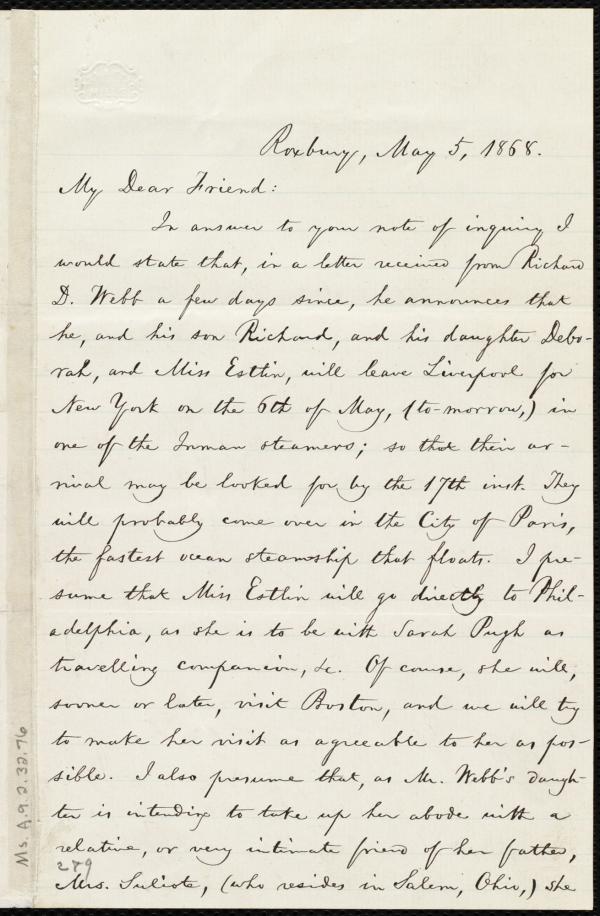 Roxbury, May 5, 1868.
My Dear Friend:
In answer to your note of inquiry I
would state that, in a letter received from Richard
D. Webb a few days since, he announces that
he, and his son Richard, and his daughter Debo-
rah, and Miss Estlin, will leave Liverpool for
New York on the 6th of May, (to-morrow,) in
one of the Inman steamers; so that their ar-
rival may be looked for by the 17th inst. They
will probably come over in the City of Paris,
the fastest ocean steamship that floats. I pre-
sume that Miss Estlin will go directly to Phil-
adelphia, as she is to be with Sarah Pugh as
travelling companion, &c. Of course, she will,
sooner or later, visit Boston, and we will try
to make her visit as agreeable to her as pos-
sible. I also presume that, as Mr. Webb's daugh-
ter is intending to take up her abode with a
relative, or very intimate friend of her father,
Mrs. Suliote, (who resides in Salem, Ohio,) she
279
Ms. A.9.2.32.76